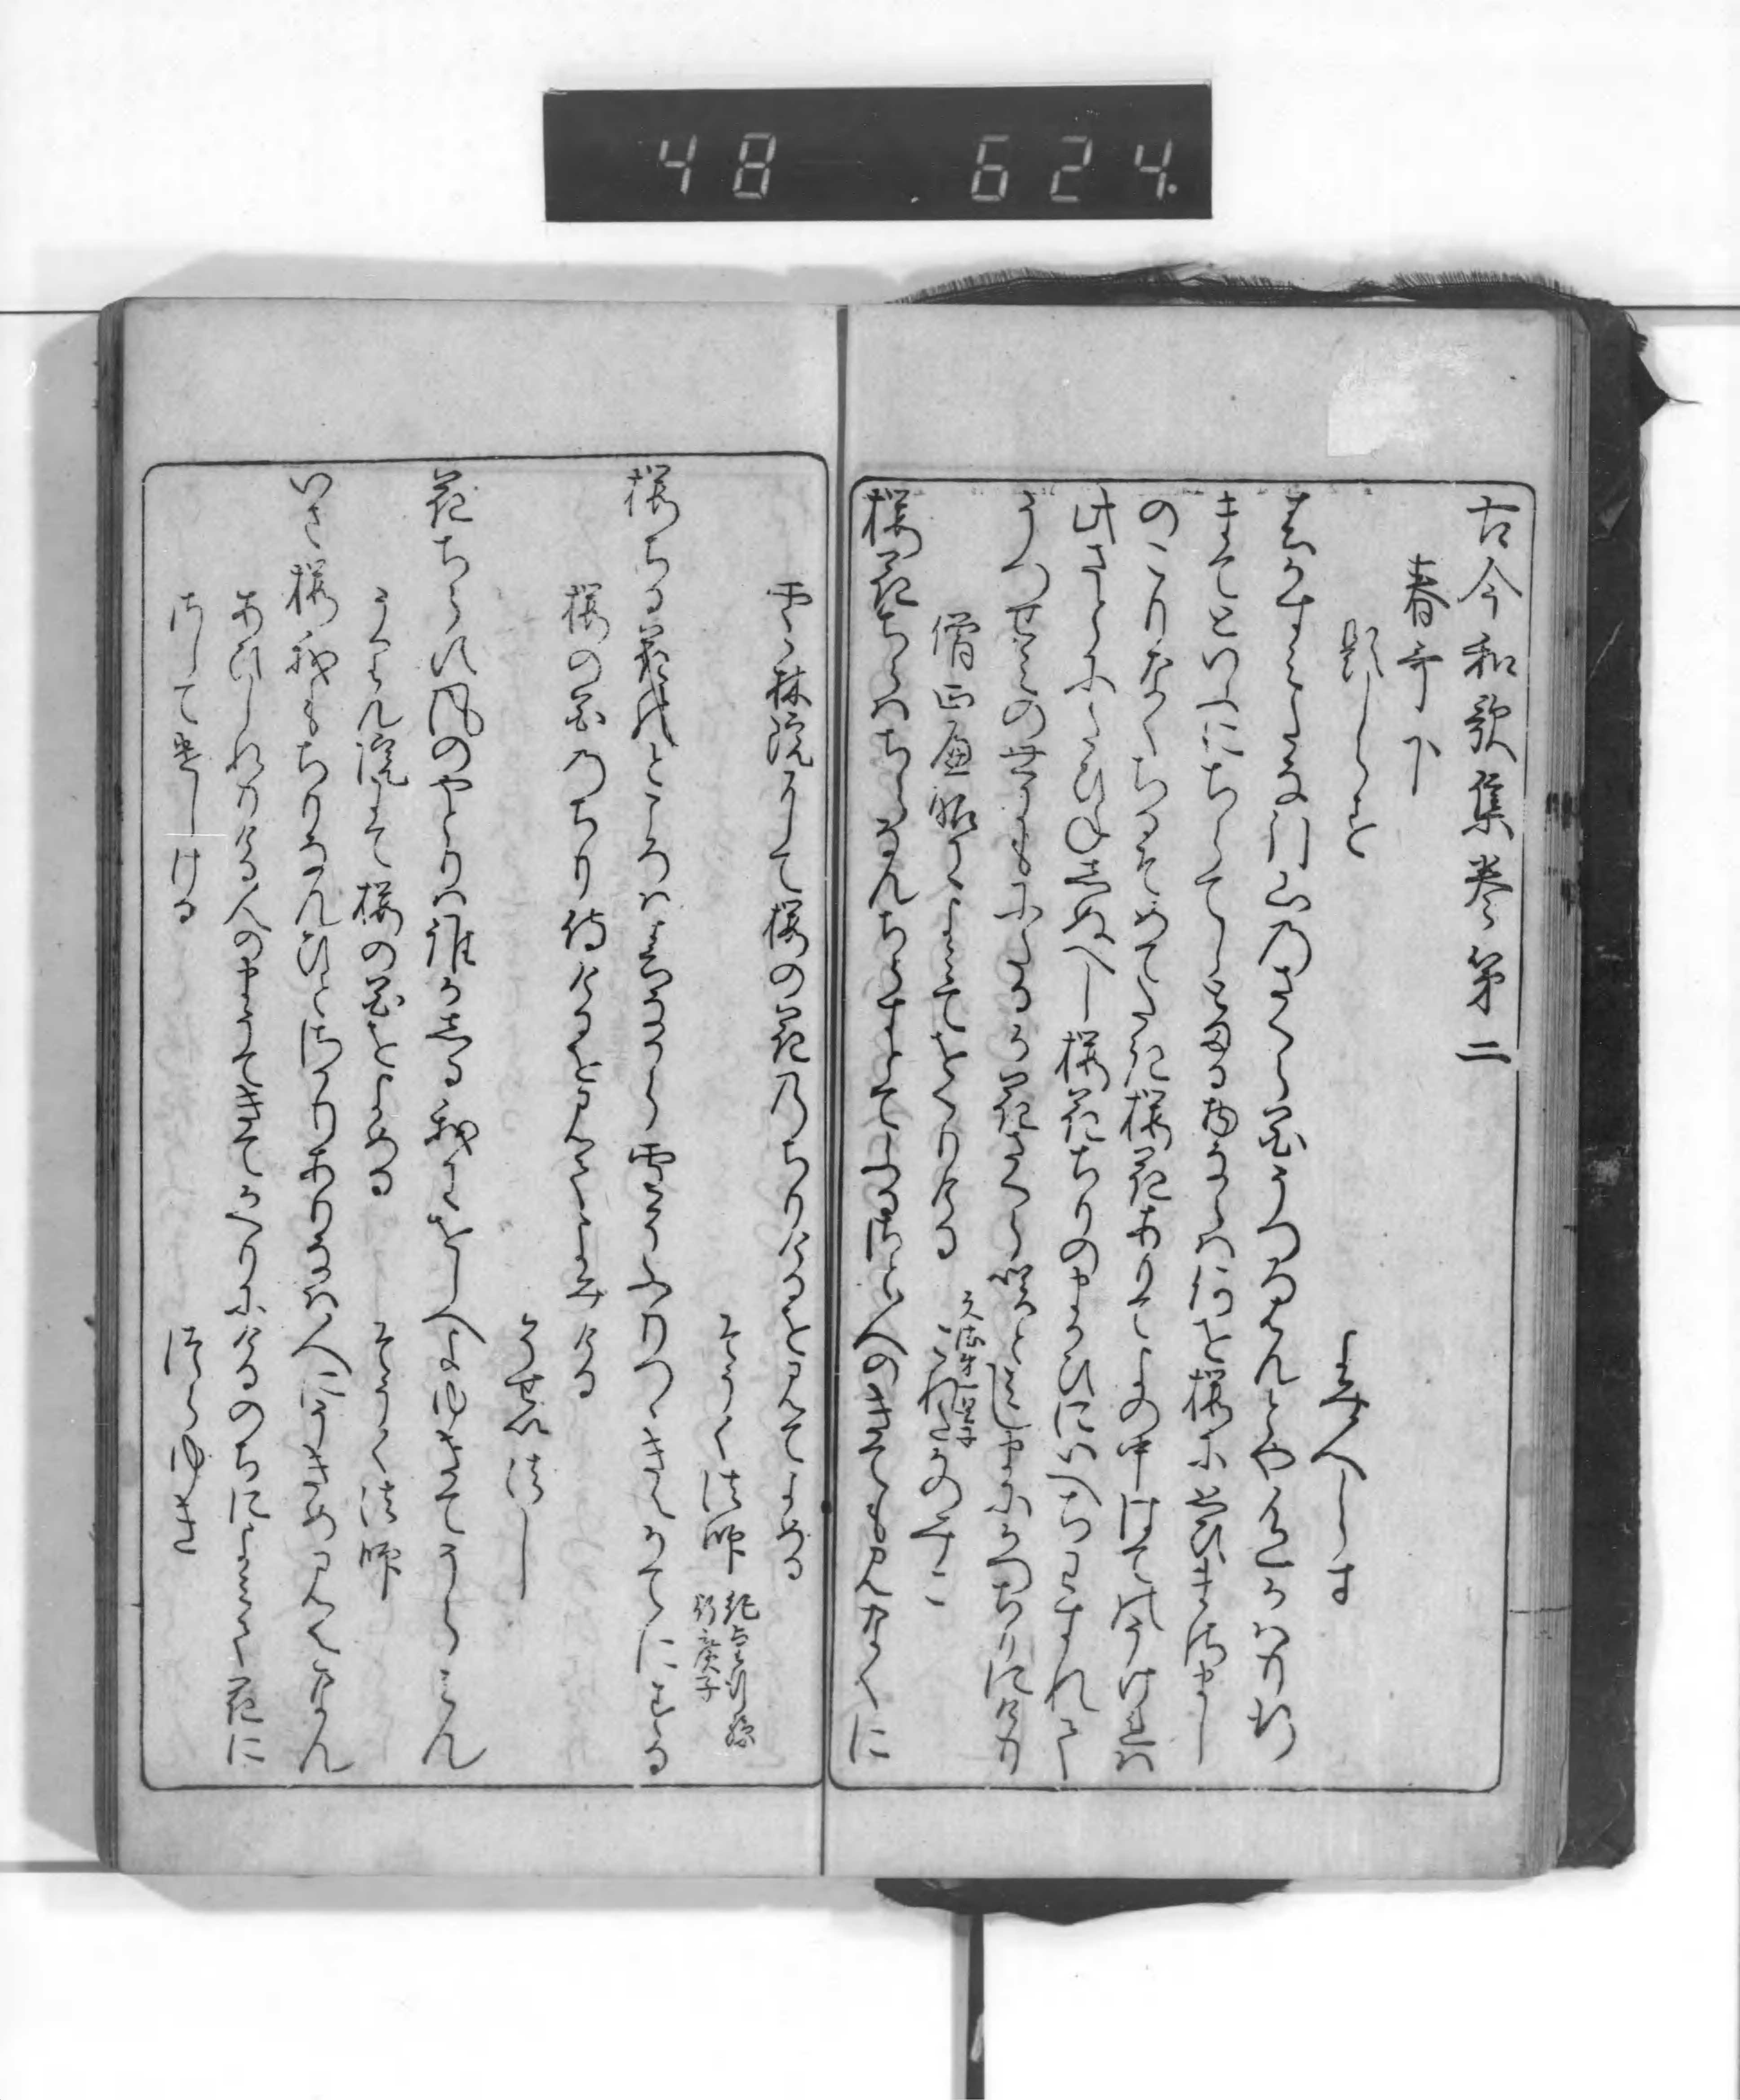 48 624.
古今和歌集巻第二
春哥下
題しらす
よみ人しらす
春かすみたな引山のさくら花うつろはんとや色かはり行
まてといふにちらてしとまる物ならは何を桜に思ひまさまし
のこりなくちるそめてたき桜花ありてよの中はての、うけれは
此さとにたひねしぬへし桜花ちりのまかひにいへちわすれて
うつせみの世にもにたるか花さくら咲とみしまにかつちりにけり
僧正遍昭によみてをくりける
これたかのみこ
桜花ちらはちらなんちらすとてふるさと人のきても見なくに
雲林院にて桜の花のちりけるを見てよめる
そうく法師
桜ちる花の所は春なから雪そふりつゝきえかてにする
桜の花のちり侍けるを見てよみける
そせい法し
花ちらす風のやとりは誰かしる我にをしへよゆきてうらみん
うりん院にて桜の花をよめる
そうく法師
いさ桜我もちりなんひとさかりありなは人にうきめ見えなん
あひしれりける人のまうてきてかへりにけるのちによみて花に
さしてつかはしける
つらゆき